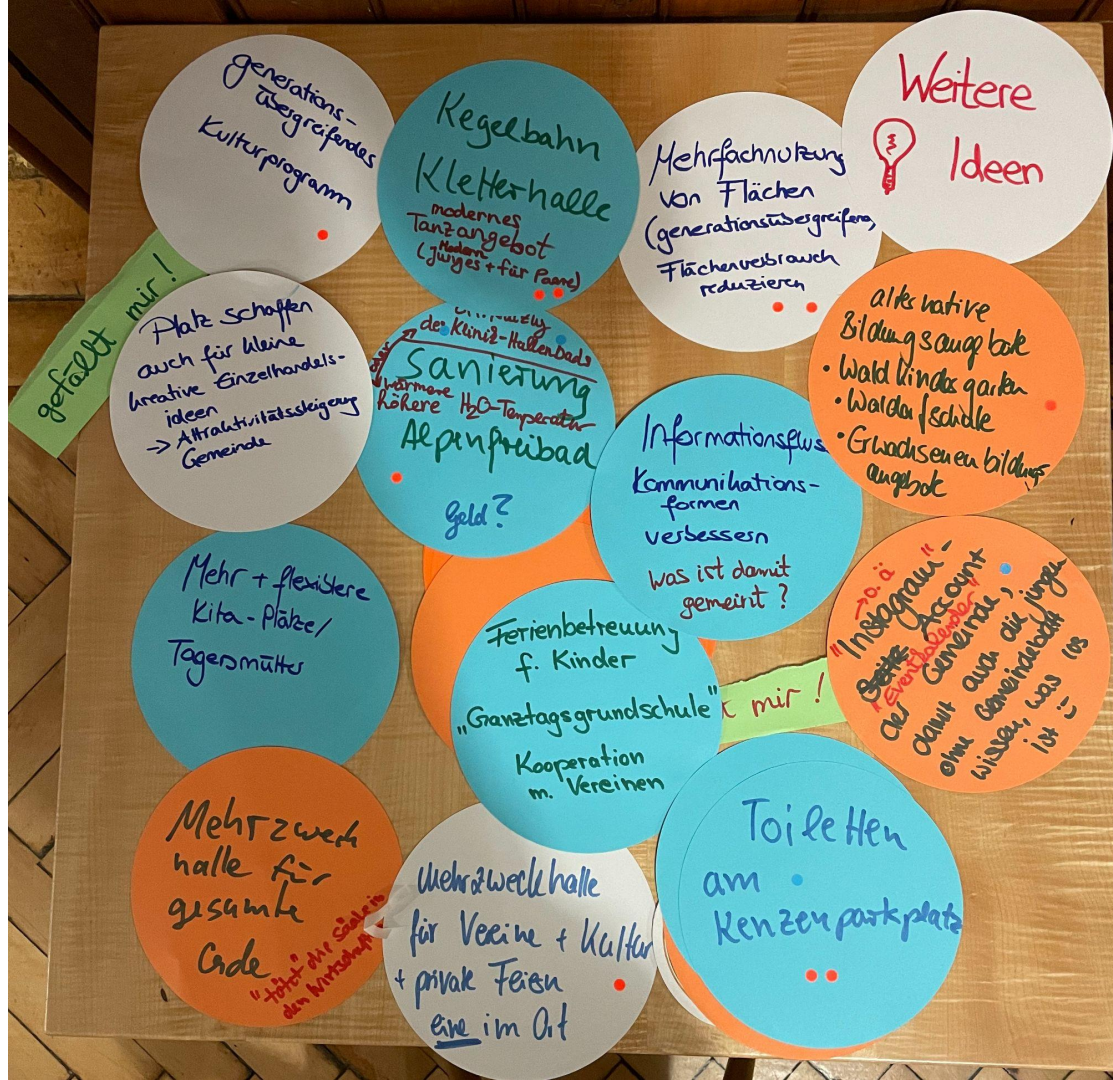 generations-
übergreifendes
Kulturprogramm
Kegelbahn
Kletterhalle
modernes
Tanzangebot
Modern
(Junges + für Paare)
Mehrfachnutzung
von Flächen
(generationsübergreifend,
Flächenverbrauch
reduzieren
Weitere
Ideen
gefällt mir!
Platz schaffen
auch für kleine
kreative Einzelhandels-
ideen
-> Attraktivitätssteigerung
Gemeinde
der Klinik-Hallenbads
oder
Sanierung
wärmere
höhere H2O-Temperatur
Alpenfreibad
Geld?
Informationsfluss
Kommunikations-
formen
verbessern
was ist damit
gemeint?
alternative
Bildungsangebote
• Waldkindergarten
• Waldorfschule
• Erwachsenenbildungs
angebote
Mehr + flexiblere
Kita-Plätze/
Tagesmütter
Ferienbetreuung
f. Kinder
"Ganztagsgrundschule"
Kooperation
m. Vereinen
t mir!
-> o. ä
"Instagram"-
Seite Account
"Eventkalender"
der Gemeinde,
damit auch die jungen
ohne Gemeindeblatt
wissen, was los
ist :)
Mehrzweck
halle für
gesamte
"tötet" die Säale in
den Wirtschaft
Mehrzweckhalle
für Vereine + Kultur
+ private Feiern
eine im Ort
Toiletten
am
Kenzenparkplatz